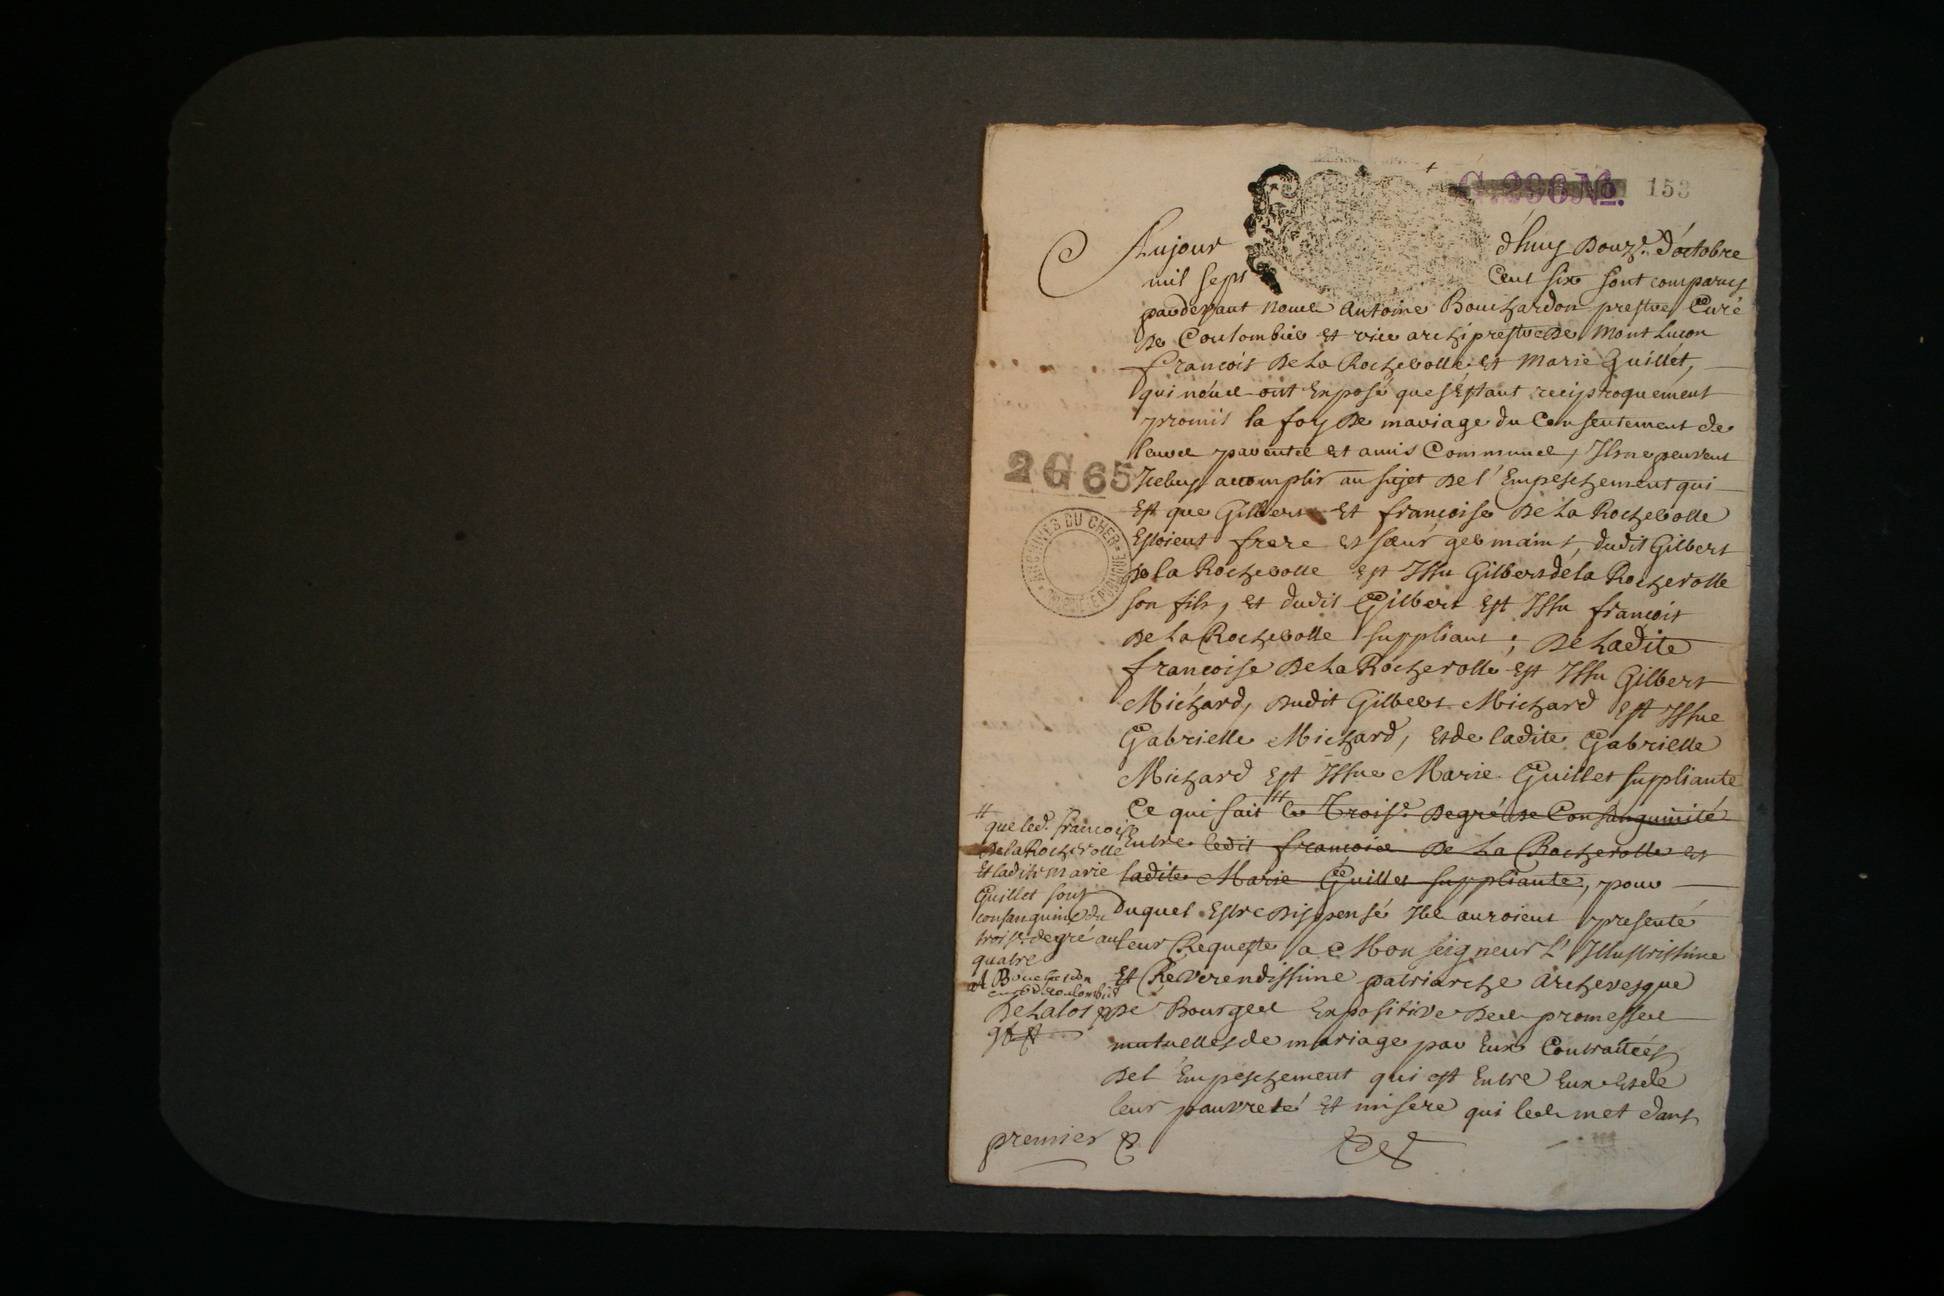 G. 296 No. 153
Aujour dhuy Douze. d'octobre
mil sept Cent six sont comparus
pardevant nous Antoine Bouchardon prestre Curé
de Coulombier et vice archiprestre de MontLuçon
francois De La Rocherolle et Marie Guillet,
qui nous ont Exposé que s'Estant reciproquement
promis la foy de mariage du Consentement de
leurs parentes et amis Communs, Ils ne peuvent
Iceluy accomplir au sujet De l'Empeschement qui
Est que Gilbert Et françoise De La Rocherolle
Estoient frere et sœur germains, dudit Gilbert
de la Rocherolle Est Issu Gilbert de la Rocherolle
son fils, et dudit Gilbert Est Issu francois
De La Rocherolle suppliant; De Ladite
françoise De La Rocherolle Est Issu Gilbert
Michard, dudit Gilbert Michard Est Issue
Gabrielle Michard, et de ladite Gabrielle
Michard Est Issue Marie Guillet suppliante
Ce qui fait # le Trois.e Degré de Consanguinité
Entre ledit francois De La Rocherolle et
ladite Marie Guillet suppliante, pour
Duquel Estre Dispensé Ils auroient presenté
leur Requeste a Mon seigneur L'Illustrissime
Et Reverendissime patriarche Archevesque
De Bourges Expositive Des promesses
mutuelles de mariage par Eux Contraitées
Del Empeschement qui est Entre Eux et de
leur pauvreté et misere qui les met dans
2 G 65
ARCHIVES DU CHER
#
que led. francois
De la Rocherolle
Et ladite marie
Guillet sont
consanguins du
trois.e degré au
quatre
A Bouchardon
curé de coulombier
premier